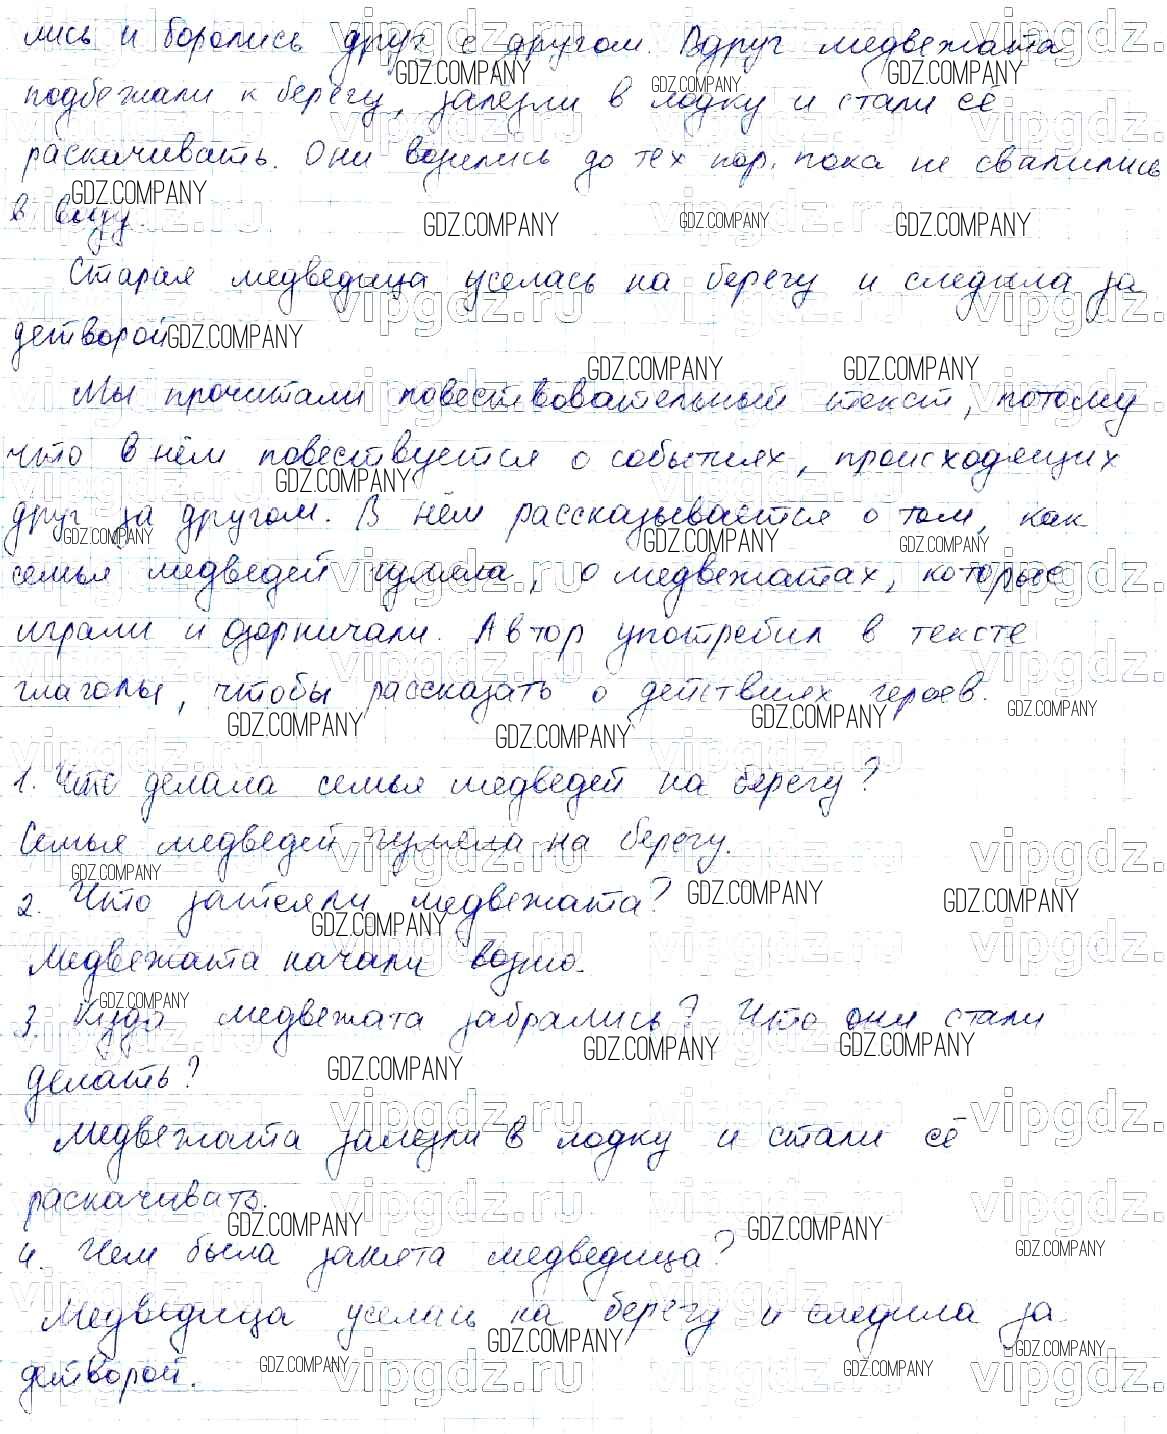 лись и боролись друг с другом. Вдруг медвежата
подбежали к берегу, залезли в лодку и стали её
раскачивать. Они возились до тех пор, пока не свалились
в воду.
Старая медведица уселась на берегу и следила за
детворой
Мы прочитали повествовательный текст, потому
что в нём повествуется о событиях, происходящих
друг за другом. В нём рассказывается о том, как
семья медведей гуляла, о медвежатах, которые
играли и озорничали. Автор употребил в тексте
глаголы, чтобы рассказать о действиях героев.
1. Что делала семья медведей на берегу?
Семья медведей гуляла на берегу.
2. Что затеяли медвежата?
Медвежата начали возню.
3. Куда медвежата забрались? Что они стали
делать?
Медвежата залезли в лодку и стали её
раскачивать.
4. Чем была занята медведица?
Медведица уселась на берегу и следила за
детворой.